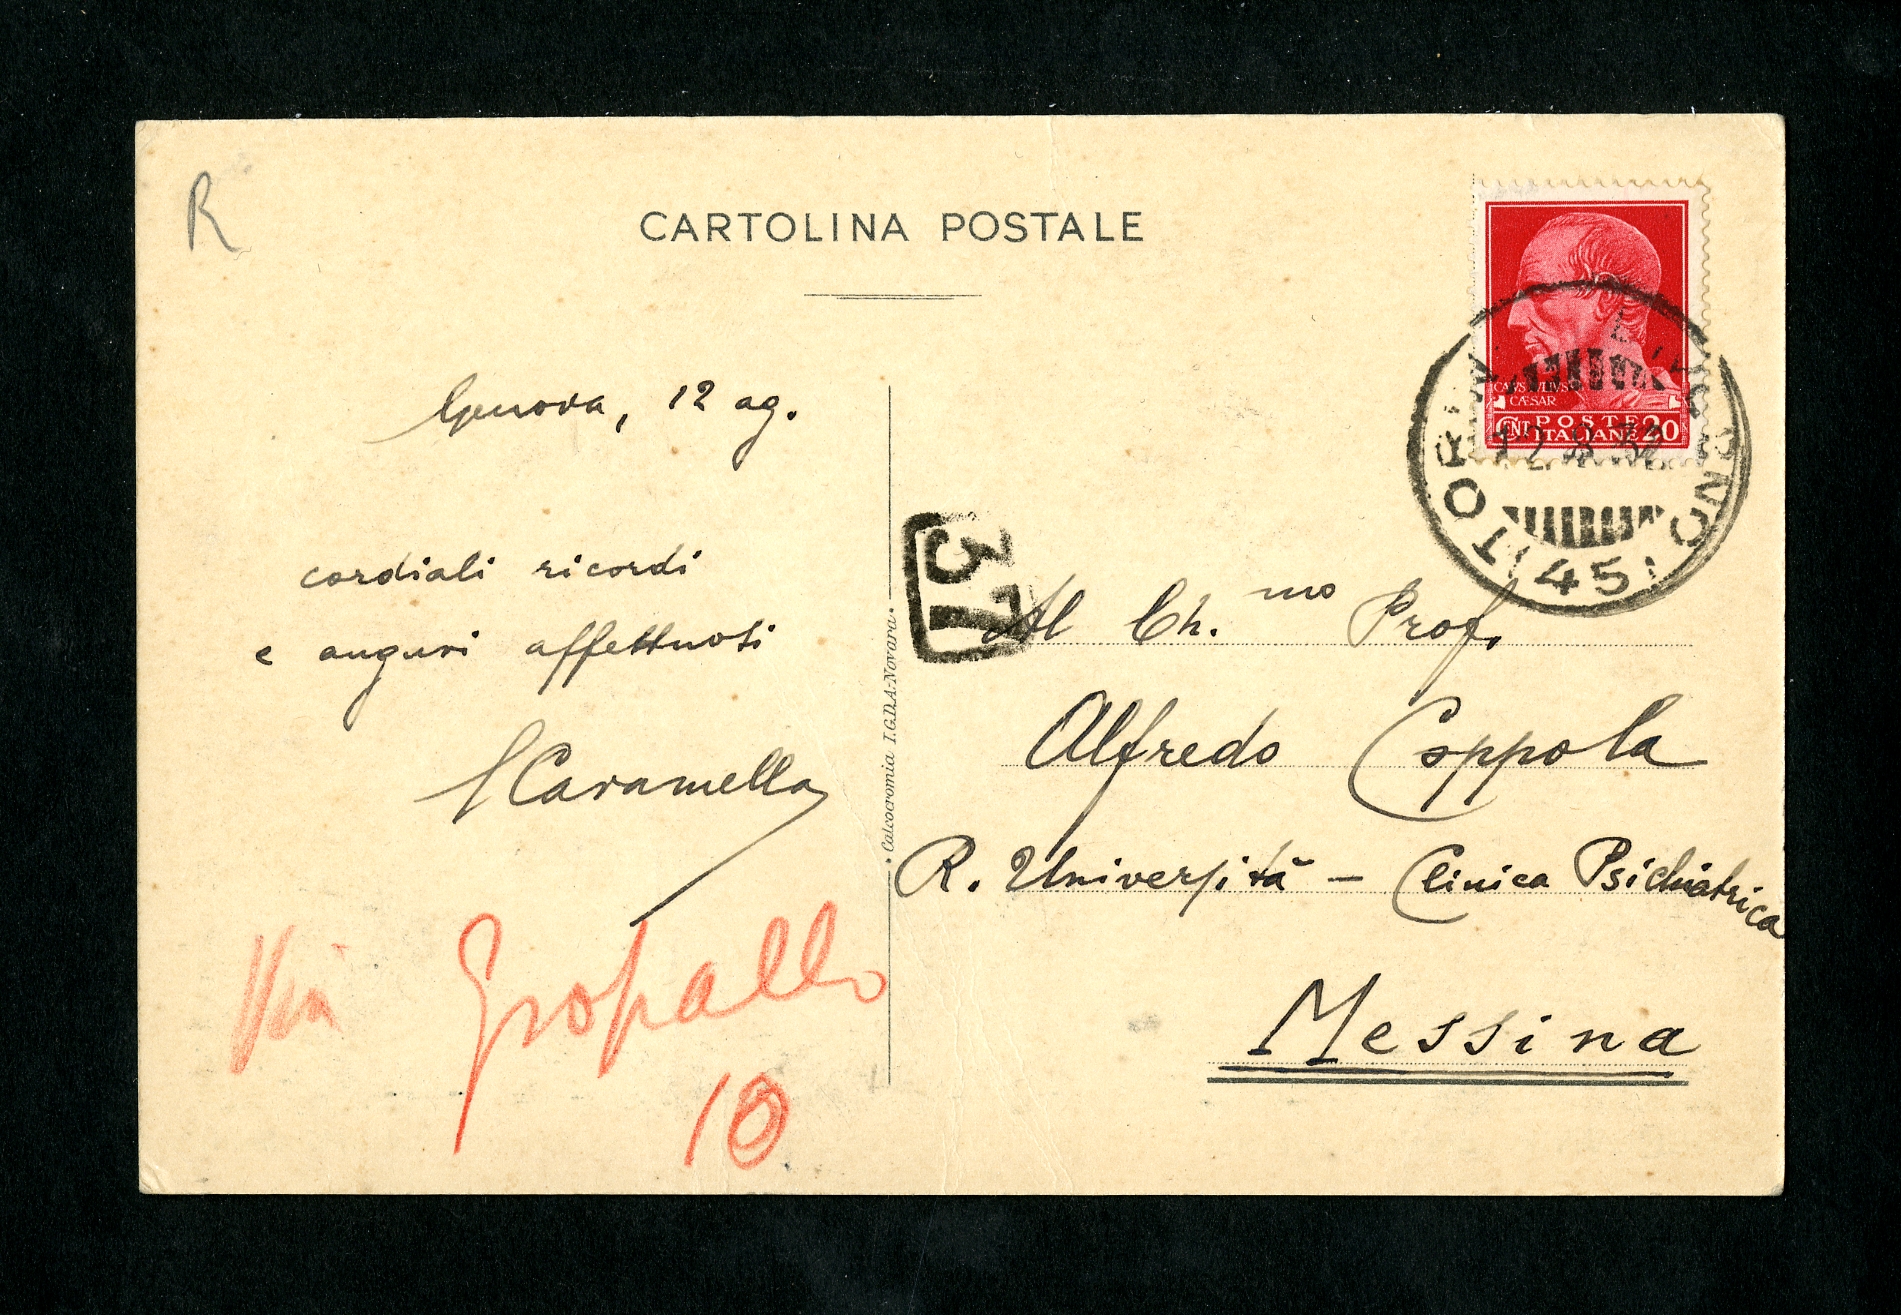 R
CARTOLINA POSTALE
CAIVS IVLIVS
CÆSAR
POSTE
CENT ITALIANE 20
12.8.32
45
Genova, 12 ag.
cordiali ricordi
e auguri affettuosi
SCaramella
Via Gropallo
10
• Calcocromia I.G.D.A.-Novara •
37
Al Ch.mo Prof.
Alfredo Coppola
R. Università - Clinica Psichiatrica
Messina